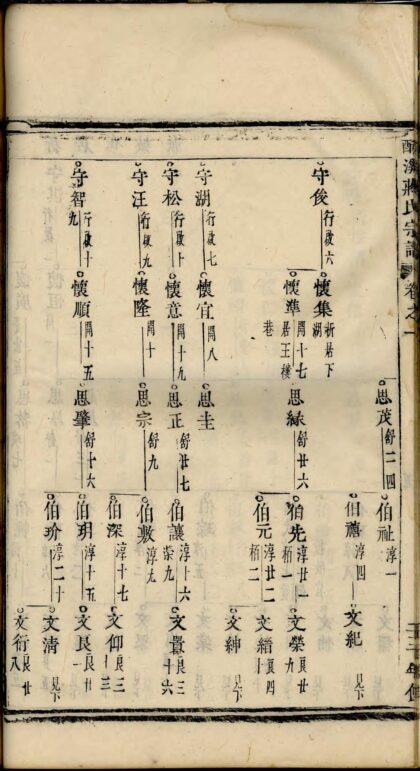 蔣氏宗譜 卷之一
思茂 舒二四
伯祉 淳一
伯禧 淳四
文紀 見下
守俊 行啟六
懷集 析居下湖
懷準 開十七 居王樓巷
思緣 舒廿六
伯先 淳廿一 栢一
文榮 良廿九
伯元 淳廿二 栢二
文縉 良四
文紳 見下
守湖 行啟七
懷宜 開八
思圭
守松 行啟卜
懷意 開十九
思正 舒廿七
伯讓 淳十六 榮九
文㬎 良三十六
守汪 行啟九
懷隆 開十
思宗 舒九
伯敷 淳九
伯深 淳十七
文仰 良三十三
守智 行啟十九
懷順 開十五
思肇 舒十六
伯玥 淳十五
文良 良廿一
伯玠 淳二十
文清 見下
文行 良廿八